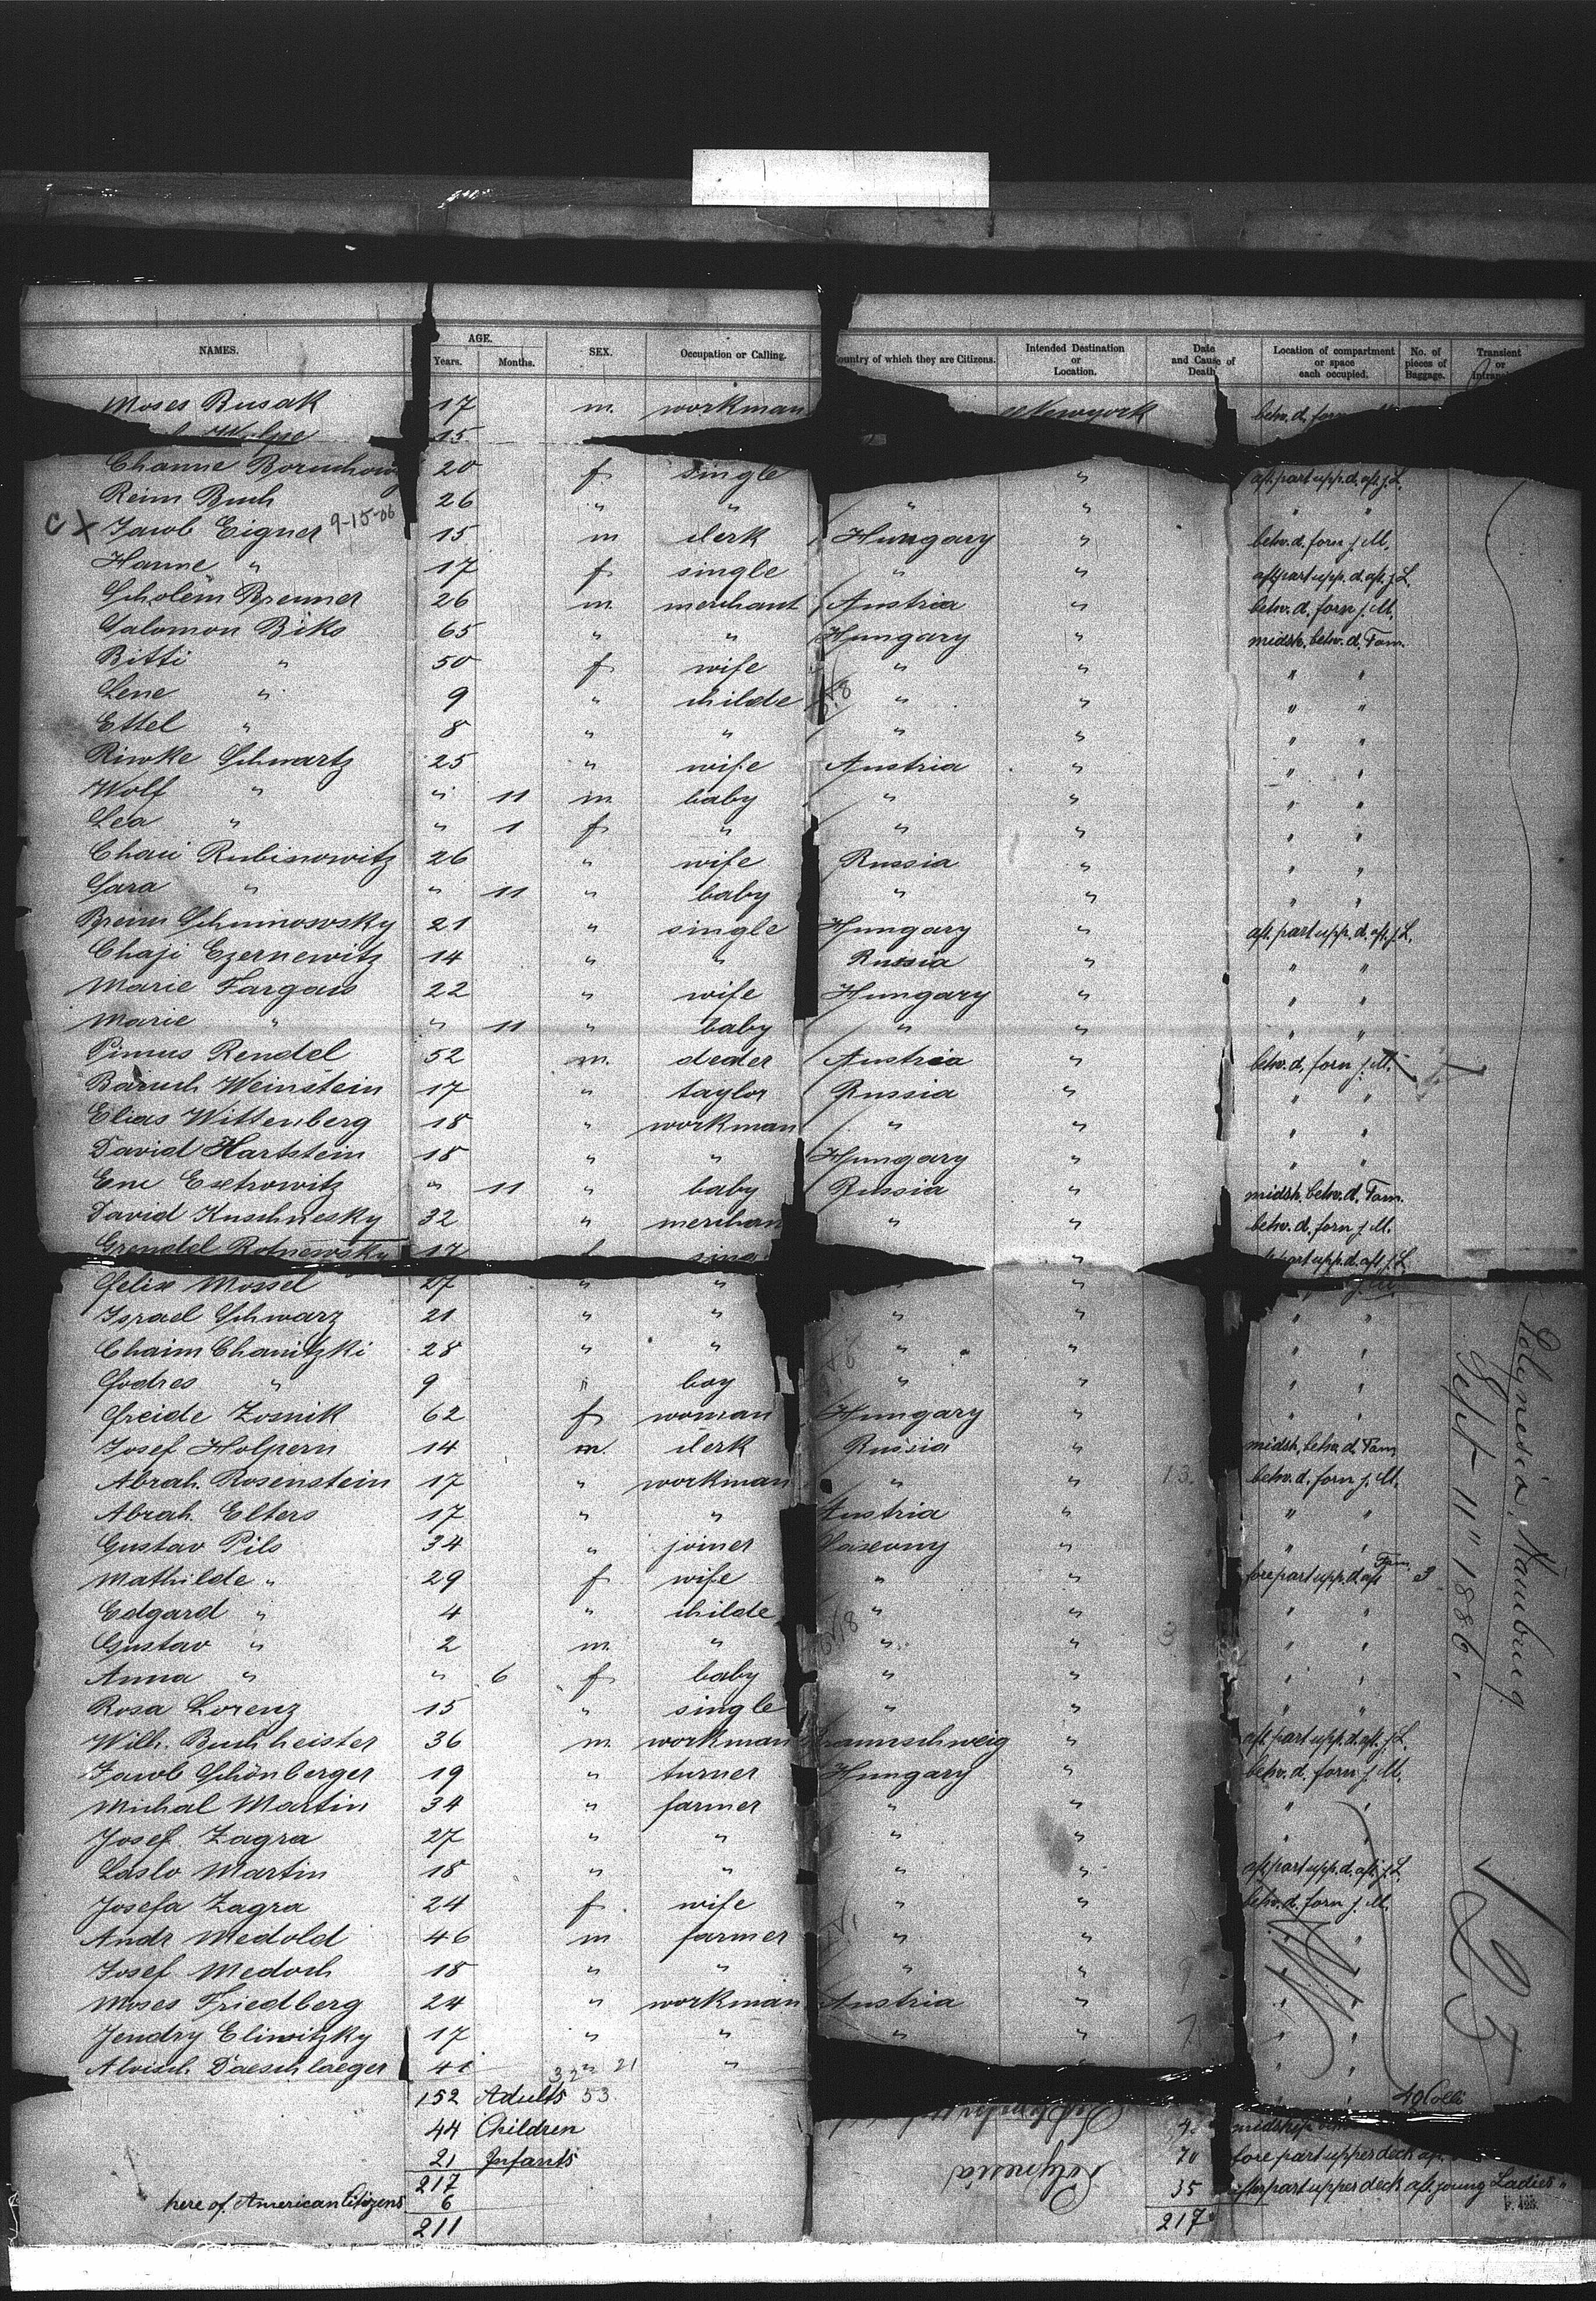 NAMES. AGE. Years. Months. SEX. Occupation or Calling. Country of which they are Citizens. Intended Destination or Location. Date and Cause of Death Location of compartment or space each occupied. No. of pieces of Baggage. Transient or
Moses Busak 17 m. workman Newyork betw. d. forn
15
Channe 20 f single " aft. part upp. d. aft. j. L.
Reim Buch 26 " " " " " "
C X Jacob Eigner 9-15-06 15 m clerk Hungary " betw. d. forn j. M.
Hanne " 17 f single " " aft part upp. d. aft. j. L.
Scholem Brenner 26 m. merchant Austria " betw. d. forn j. M.
Salomon Biks 65 " " Hungary " midsh. betw. d. Fam.
Bitti " 50 f wife " " " "
Lene " 9 " childe " " " "
Ettel " 8 " " " " " "
Riwke Schwartz 25 " wife Austria " " "
Wolf " " 11 m. baby " " " "
Lea " " 1 f " " " " "
Chaie Rubinowitz 26 " wife Russia " " "
Sara " " 11 " baby " " " "
Breine 21 " single Hungary " aft. part upp. d. aft. j. L.
Chaji Czernewitz 14 " " Russia " " "
Marie Fargaus 22 " wife Hungary " " "
Marie " " 11 " baby " " " "
Pinnus Rendel 52 m. deder Austria " betw. d. forn j. M.
Baruch Weinstein 17 " taylor Russia " " "
Elias Wittenberg 18 " workman " " " "
David Hartstein 18 " " Hungary " " "
Ene Extrowitz " 11 " baby Russia " midsh. betw. d. Fam.
David Kuschnesky 32 " merchan " " betw. d. forn j. M.
Grendel Rotnewsky 17 f " part upp. d. aft j. L
Felix Mossel 27 " " " "
Israel Schwarz 21 " " " " " "
Chaim Chanitzki 28 " " " " " "
Fodres " 9 " boy " " " "
Freide Zosnik 62 f woman Hungary " " "
Josef Holpern 14 m. clerk Russia " midsh. betw. d. Fam.
Abrah. Rosenstein 17 " workman " " 13. betw. d. forn j. M.
Abrah. Elters 17 " " Austria " " "
Gustav Pils 34 " joiner Saxony " " "
Mathilde " 29 f wife " " fore part upp. d. aft Fam. 3
Edgard " 4 " childe " " " "
Gustav " 2 m. " " " 3 " "
Anna " " 6 f baby " " " "
Rosa Lorenz 15 " single " " " "
Wilh. Buchheister 36 m. workman raunschweig " aft. part upp. d. aft. j. L.
Jacob Schönberger 19 " turner Hungary " betw. d. forn j. M.
Michal Martin 34 " farmer " " " "
Josef Zagra 27 " " " " "
Laslo Martin 18 " " " " aft. part upp. d. aft. j. L.
Josefa Zagra 24 f wife " " betw. d. forn j. M.
Andr Medold 46 m farmer " " "
Josef Medoch 18 " " " " 9 "
Moses Friedberg 24 " workman Austria " " "
Jendry Elinwitzky 17 " " " " 7 " "
Daeschlaeger 41 " " "
152 Adults 53. 49 Colli
44 Children
21 Infants 70 fore part upper deck aft.
217 Polynesia 35 after part upper deck aft. young Ladies "
here of American Citizens 6
211 217
Polynesia, Hamburg
Sept 11" 1886.
125